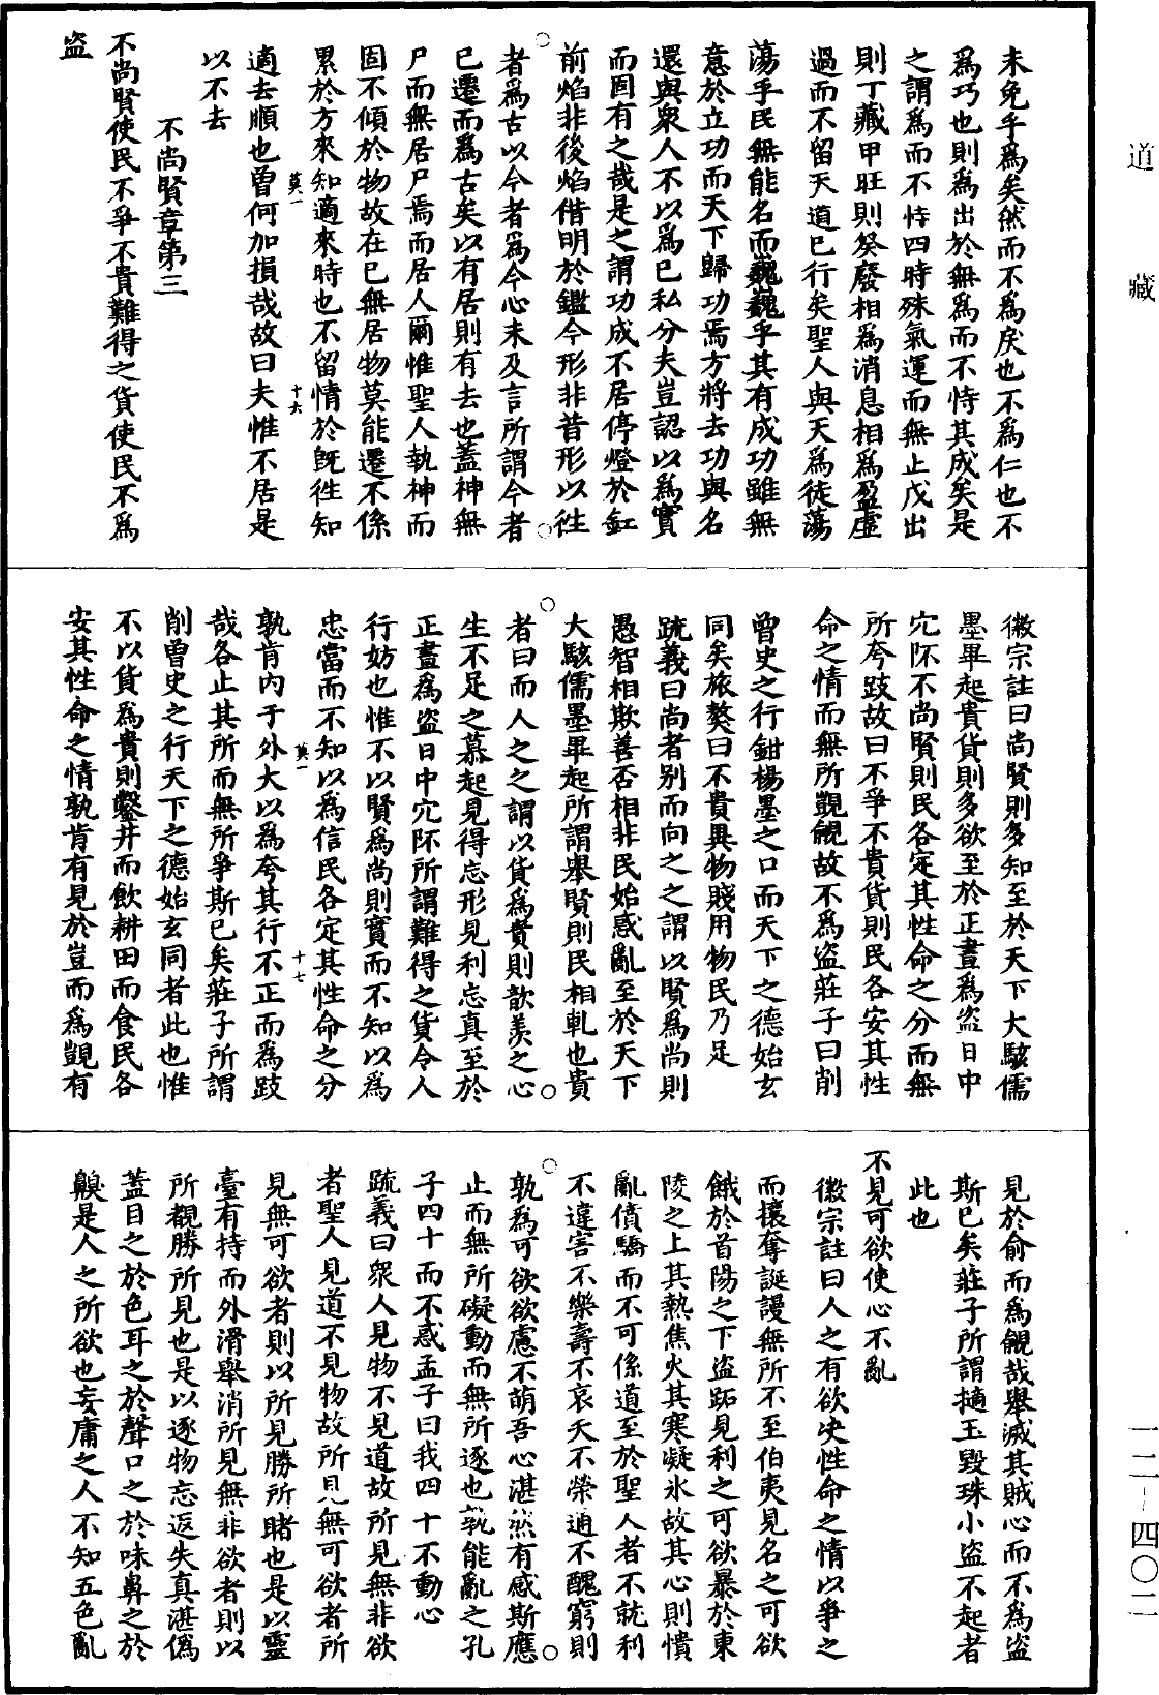 道藏
未免乎爲矣然而不爲戾也不爲仁也不
爲巧也則爲出於無爲而不恃其成矣是
之謂爲而不恃四時殊氣運而無止戊出
則丁藏甲旺則癸廢相爲消息相爲盈虛
過而不留天道已行矣聖人與天爲徒蕩
蕩乎民無能名而巍巍乎其有成功雖無
意於立功而天下歸功焉方將去功與名
還與衆人不以爲已私分夫豈認以爲實
而固有之哉是之謂功成不居停燈於缸
前焰非後焰借明於鑑今形非昔形以往
者爲古以今者爲今心未及言所謂今者
已遷而爲古矣以有居則有去也蓋神無
尸而無居尸焉而居人爾惟聖人執神而
固不傾於物故在已無居物莫能遷不係
累於方來知適來時也不留情於旣往知
莫一 十六
適去順也曾何加損哉故曰夫惟不居是
以不去
不尚賢章第三
不尚賢使民不爭不貴難得之貨使民不爲
盜
徽宗註曰尚賢則多知至於天下大駭儒
墨畢起貴貨則多欲至於正晝爲盜日中
穴阫不尚賢則民各定其性命之分而無
所夸跂故曰不爭不貴貨則民各安其性
命之情而無所覬覦故不爲盜莊子曰削
曾史之行鉗楊墨之口而天下之德始玄
同矣旅獒曰不貴異物賤用物民乃足
疏義曰尚者别而向之之謂以賢爲尚則
愚智相欺善否相非民始惑亂至於天下
大駭儒墨畢起所謂舉賢則民相軋也貴
者曰而人之之謂以貨爲貴則歆羡之心
生不足之慕起見得忘形見利忘真至於
正晝爲盜日中穴阫所謂難得之貨令人
行妨也惟不以賢爲尚則實而不知以爲
忠當而不知以爲信民各定其性命之分
莫一 十七
孰肯內于外大以爲夸其行不正而爲跂
哉各止其所而無所爭斯已矣莊子所謂
削曾史之行天下之德始玄同者此也惟
不以貨爲貴則鑿井而飲耕田而食民各
安其性命之情孰肯有見於豈而爲覬有
見於俞而爲覦哉舉滅其賊心而不爲盜
斯已矣莊子所謂擿玉毀珠小盜不起者
此也
不見可欲使心不亂
徽宗註曰人之有欲决性命之情以爭之
而攘奪誕謾無所不至伯夷見名之可欲
餓於首陽之下盜跖見利之可欲暴於東
陵之上其熱焦火其寒凝氷故其心則憒
亂僨驕而不可係道至於聖人者不就利
不違害不樂壽不哀夭不榮通不醜窮則
孰爲可欲欲慮不萌吾心湛然有感斯應
止而無所礙動而無所逐也孰能亂之孔
子四十而不惑孟子曰我四十不動心
疏義曰衆人見物不見道故所見無非欲
者聖人見道不見物故所見無可欲者所
見無可欲者則以所見勝所睹也是以靈
臺有持而外滑舉消所見無非欲者則以
所覩勝所見也是以逐物忘返失真湛僞
蓋目之於色耳之於聲口之於味鼻之於
齅是人之所欲也妄庸之人不知五色亂
一二-四〇二